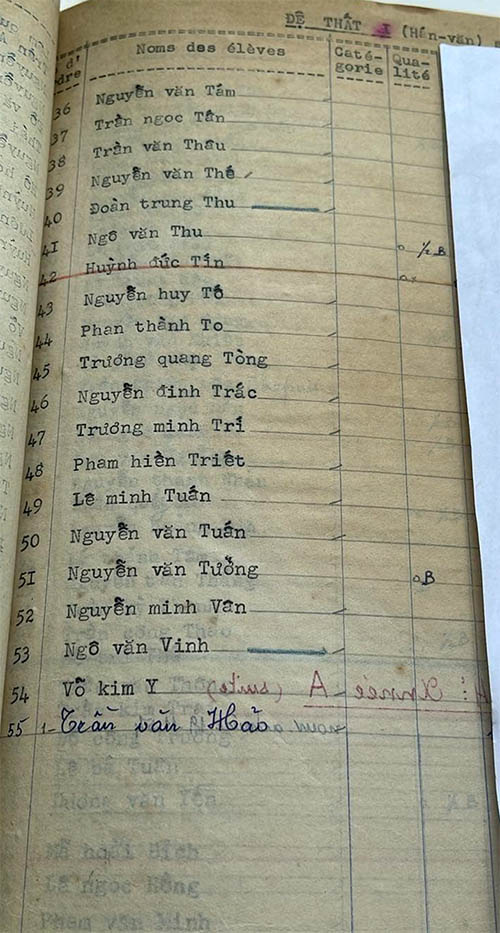 ĐỆ THẤT I (Hán-văn)
d' Noms des élèves Caté- Qua-
dre gorie lité
36 Nguyễn văn Tám
37 Trần ngọc Tấn
38 Trần văn Thâu
39 Nguyễn văn Thế
40 Đoàn trung Thu
41 Ngô văn Thu 1/2 B
42 Huỳnh đức Tín
43 Nguyễn huy Tố
44 Phan thành To
45 Trương quang Tòng
46 Nguyễn đình Trắc
47 Trương minh Trí
48 Phạm hiền Triết
49 Lê minh Tuấn
50 Nguyễn văn Tuấn
51 Nguyễn văn Tưởng B
52 Nguyễn minh Vân
53 Ngô văn Vinh
54 Võ kim Y
55 1- Trần văn Hảo